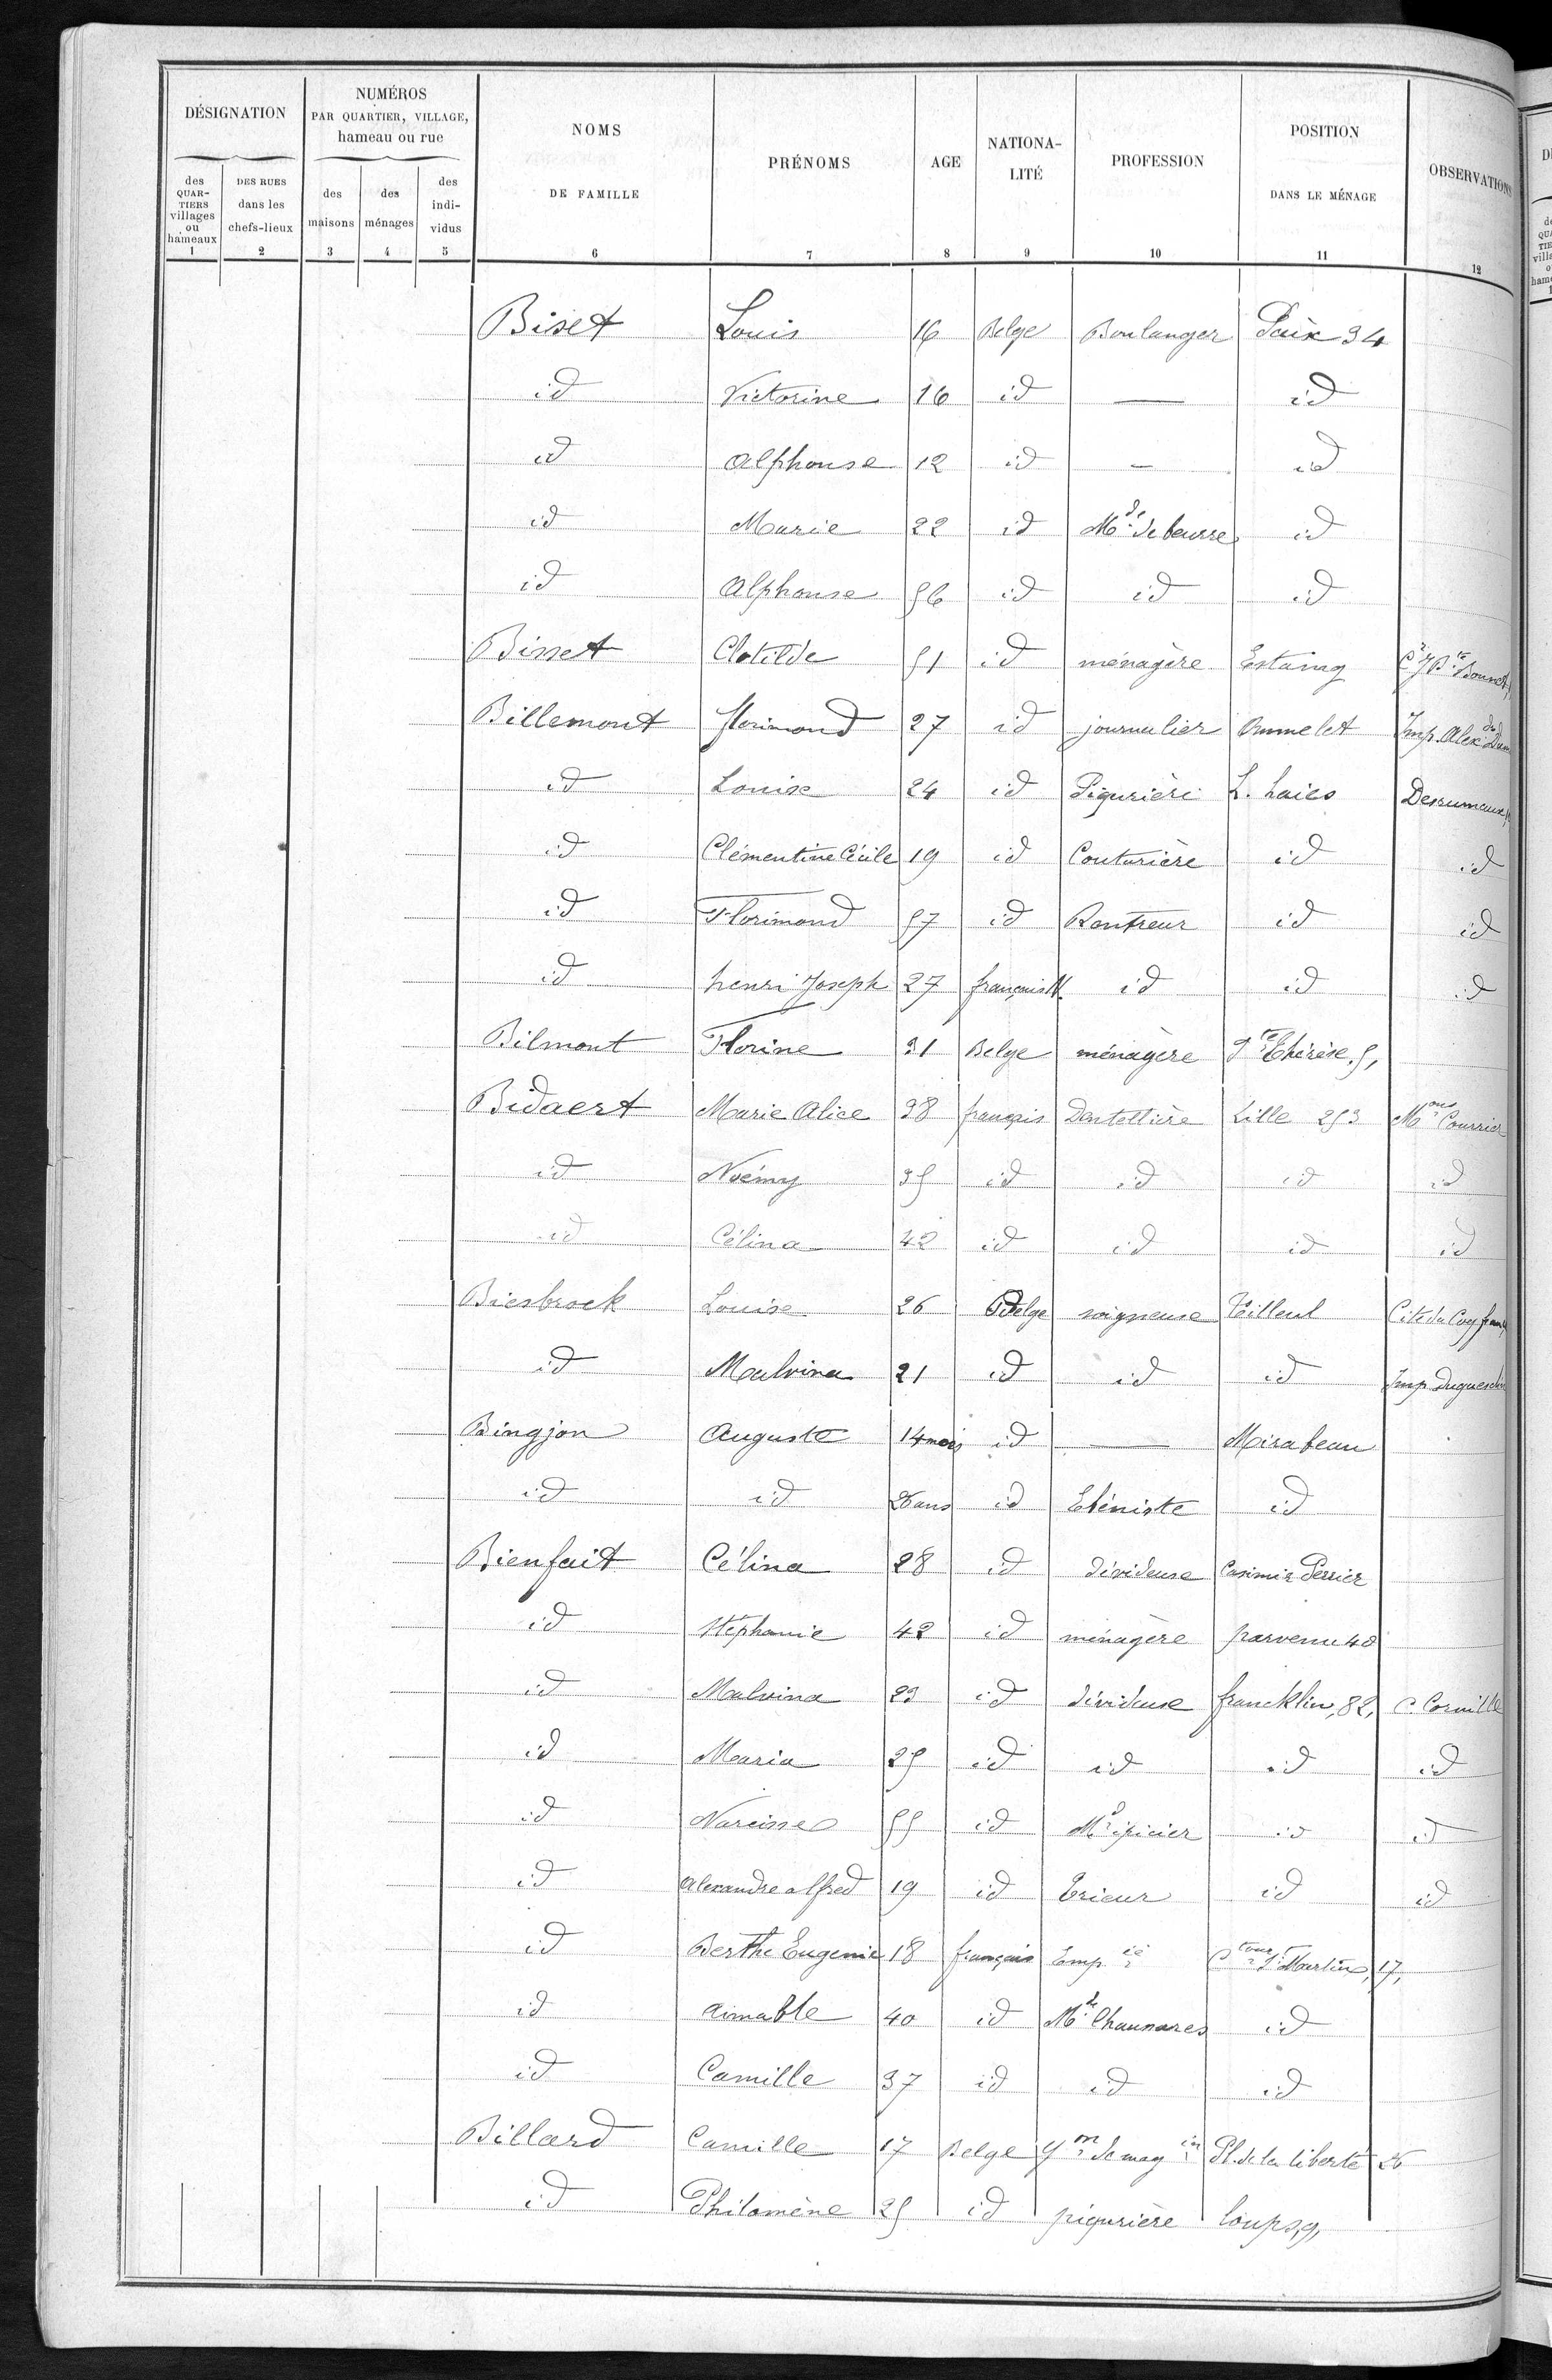 DÉSIGNATION
NUMÉROS
PAR QUARTIER, VILLAGE,
hameau ou rue
NOMS
DE FAMILLE
PRÉNOMS
AGE
NATIONA-
LITÉ
PROFESSION
POSITION
DANS LE MÉNAGE
OBSERVATIONS
des
QUAR-
TIERS
villages
ou
hameaux
DES RUES
dans les
chefs-lieux
des
maisons
des
ménages
des
indi-
vidus
1 2 3 4 5 6 7 8 9 10 11 12
Biset Louis 16 Belge Boulanger Paix 34
id Victorine 16 id — id
id Alphonse 12 id — id
id Marie 22 id Mde de beurre id
id Alphonse 56 id id id
Bisset Clotilde 51 id ménagère Estaing
Billemont florimond 27 id journalier Ommelet Imp. Alex.
id Louise 24 id Piqurière L. haies Desrumeaux
id Clémentine Cécile 19 id Couturière id id
id Florimond 57 id Rontreur id id
id henri Joseph 27 français N. id id id
Bilmont Florine 31 Belge ménagère Ste Thérèse 5,
Bidaert Marie Alice 38 français Dentellière Lille 253 Mons Courrier
id Noémy 35 id id id id
id Célina 42 id id id id
Biesbrock Louise 26 Belge soigneuse Tilleul Cité du Coq français
id Malvina 21 id id id Imp. Duguesclin
Bingjon Auguste 14 mois id — Mirabeau
id id 26 ans id Ebéniste id
Bienfait Célina 28 id dévideuse Casimir Perrier
id Stéphanie 42 id ménagère parvenu 40
id Malvina 23 id dévideuse francklin, 82, c. Cornille
id Maria 25 id id id id
id Narcisse 55 id Md épicier id id
id Alexandre alfred 19 id Trieur id id
id Berthe Eugenie 18 français Emp. ée Ctour St Martin, 17,
id aimable 40 id Md Chaussures id
id Camille 37 id id id
Billard Camille 17 Belge gon de mag in Pl. de la liberté 26
id Philomène 25 id piqurière loups, 9,